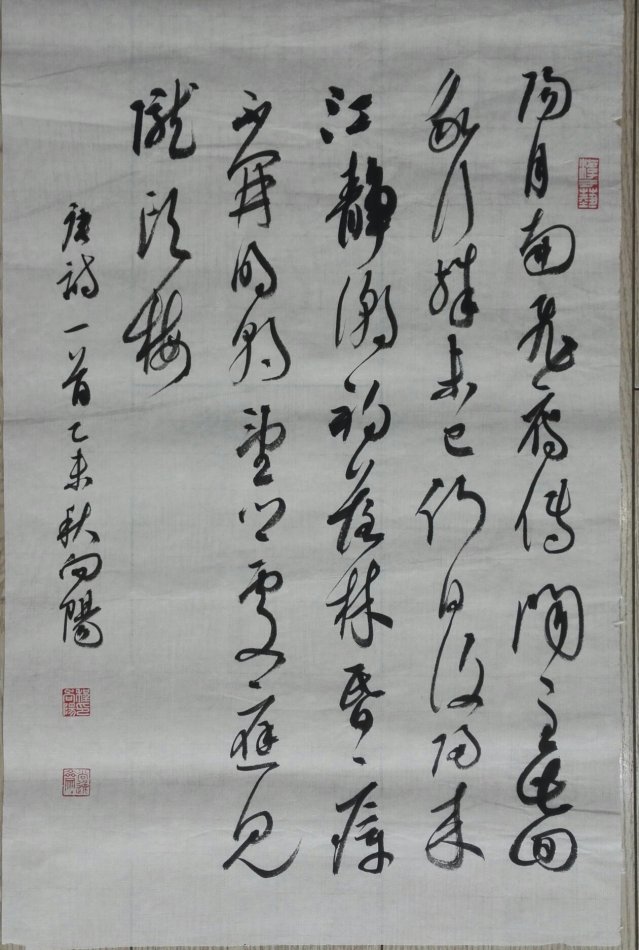 陽月南飛雁傳聞至此回
我行殊未已何日復歸來
江靜潮初落林昏瘴
不開明朝望鄉處應見
隴頭梅
唐詩一首乙未秋向陽